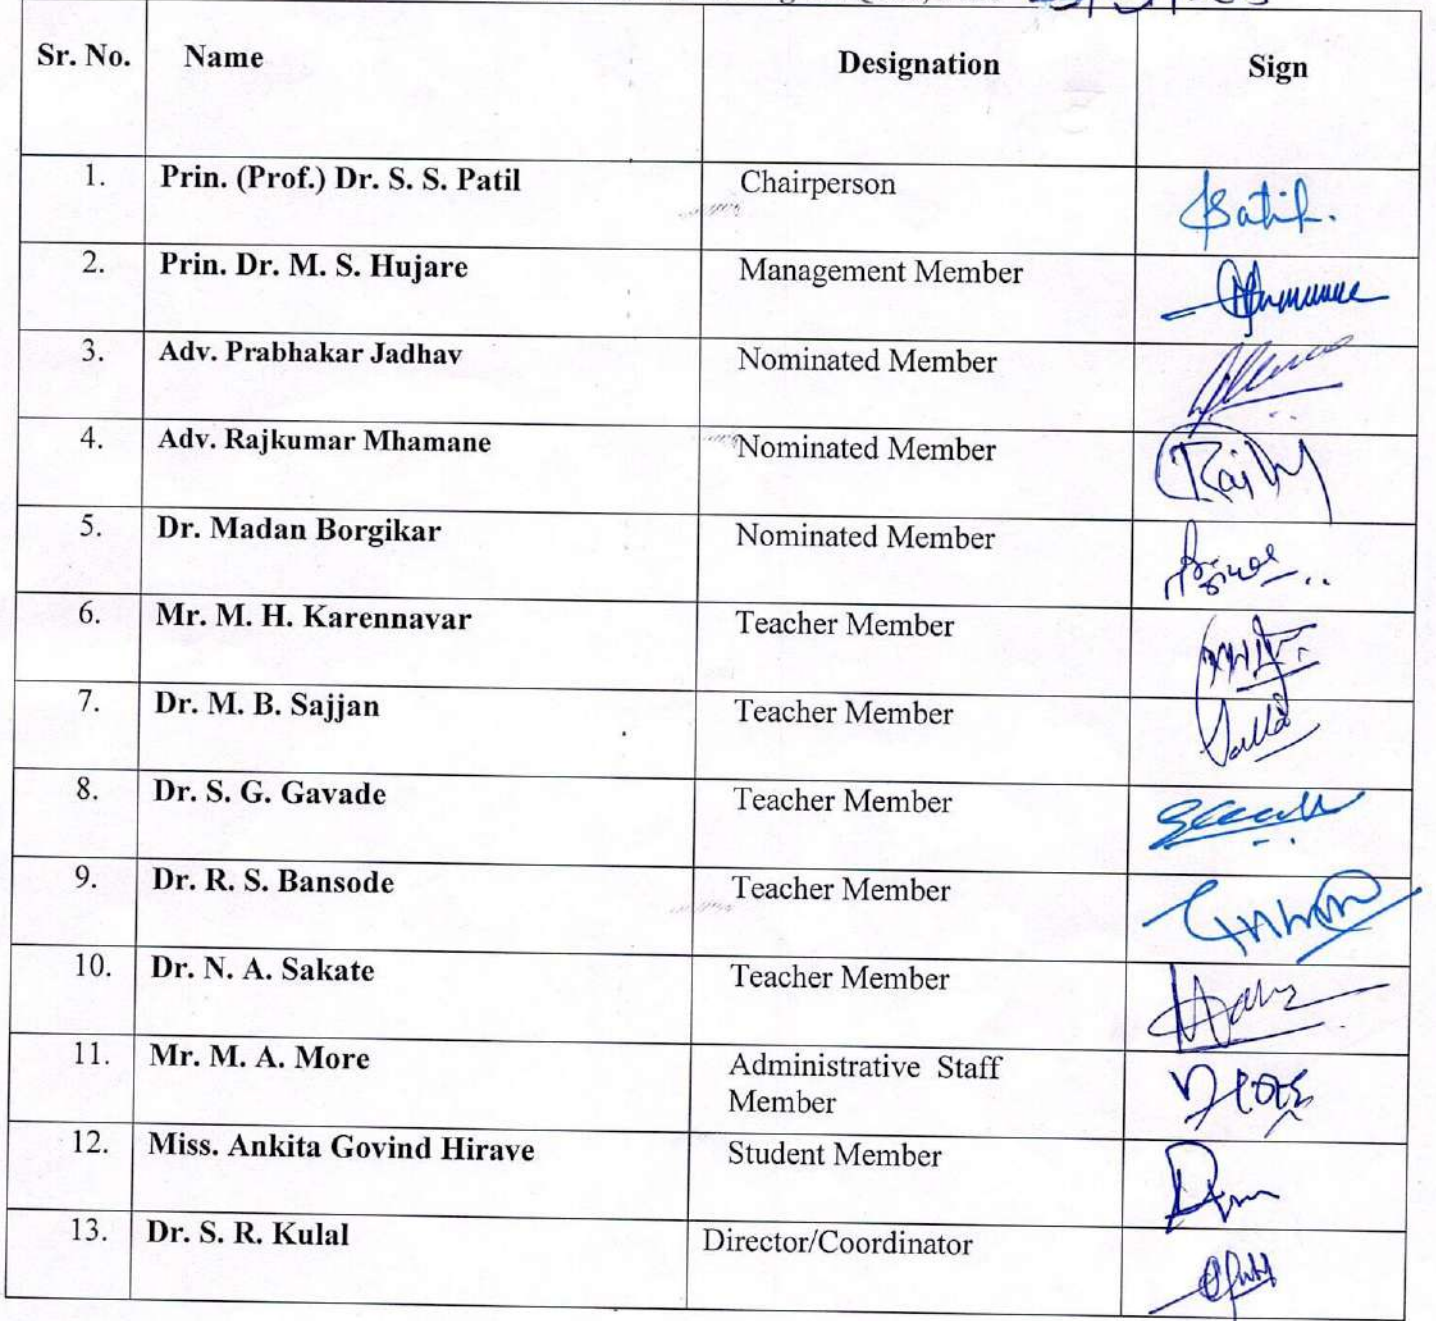 Sr. No. Name Designation Sign
1. Prin. (Prof.) Dr. S. S. Patil Chairperson Patil.
2. Prin. Dr. M. S. Hujare Management Member
3. Adv. Prabhakar Jadhav Nominated Member
4. Adv. Rajkumar Mhamane Nominated Member
5. Dr. Madan Borgikar Nominated Member
6. Mr. M. H. Karennavar Teacher Member
7. Dr. M. B. Sajjan Teacher Member
8. Dr. S. G. Gavade Teacher Member
9. Dr. R. S. Bansode Teacher Member
10. Dr. N. A. Sakate Teacher Member
11. Mr. M. A. More Administrative Staff
Member
12. Miss. Ankita Govind Hirave Student Member
13. Dr. S. R. Kulal Director/Coordinator